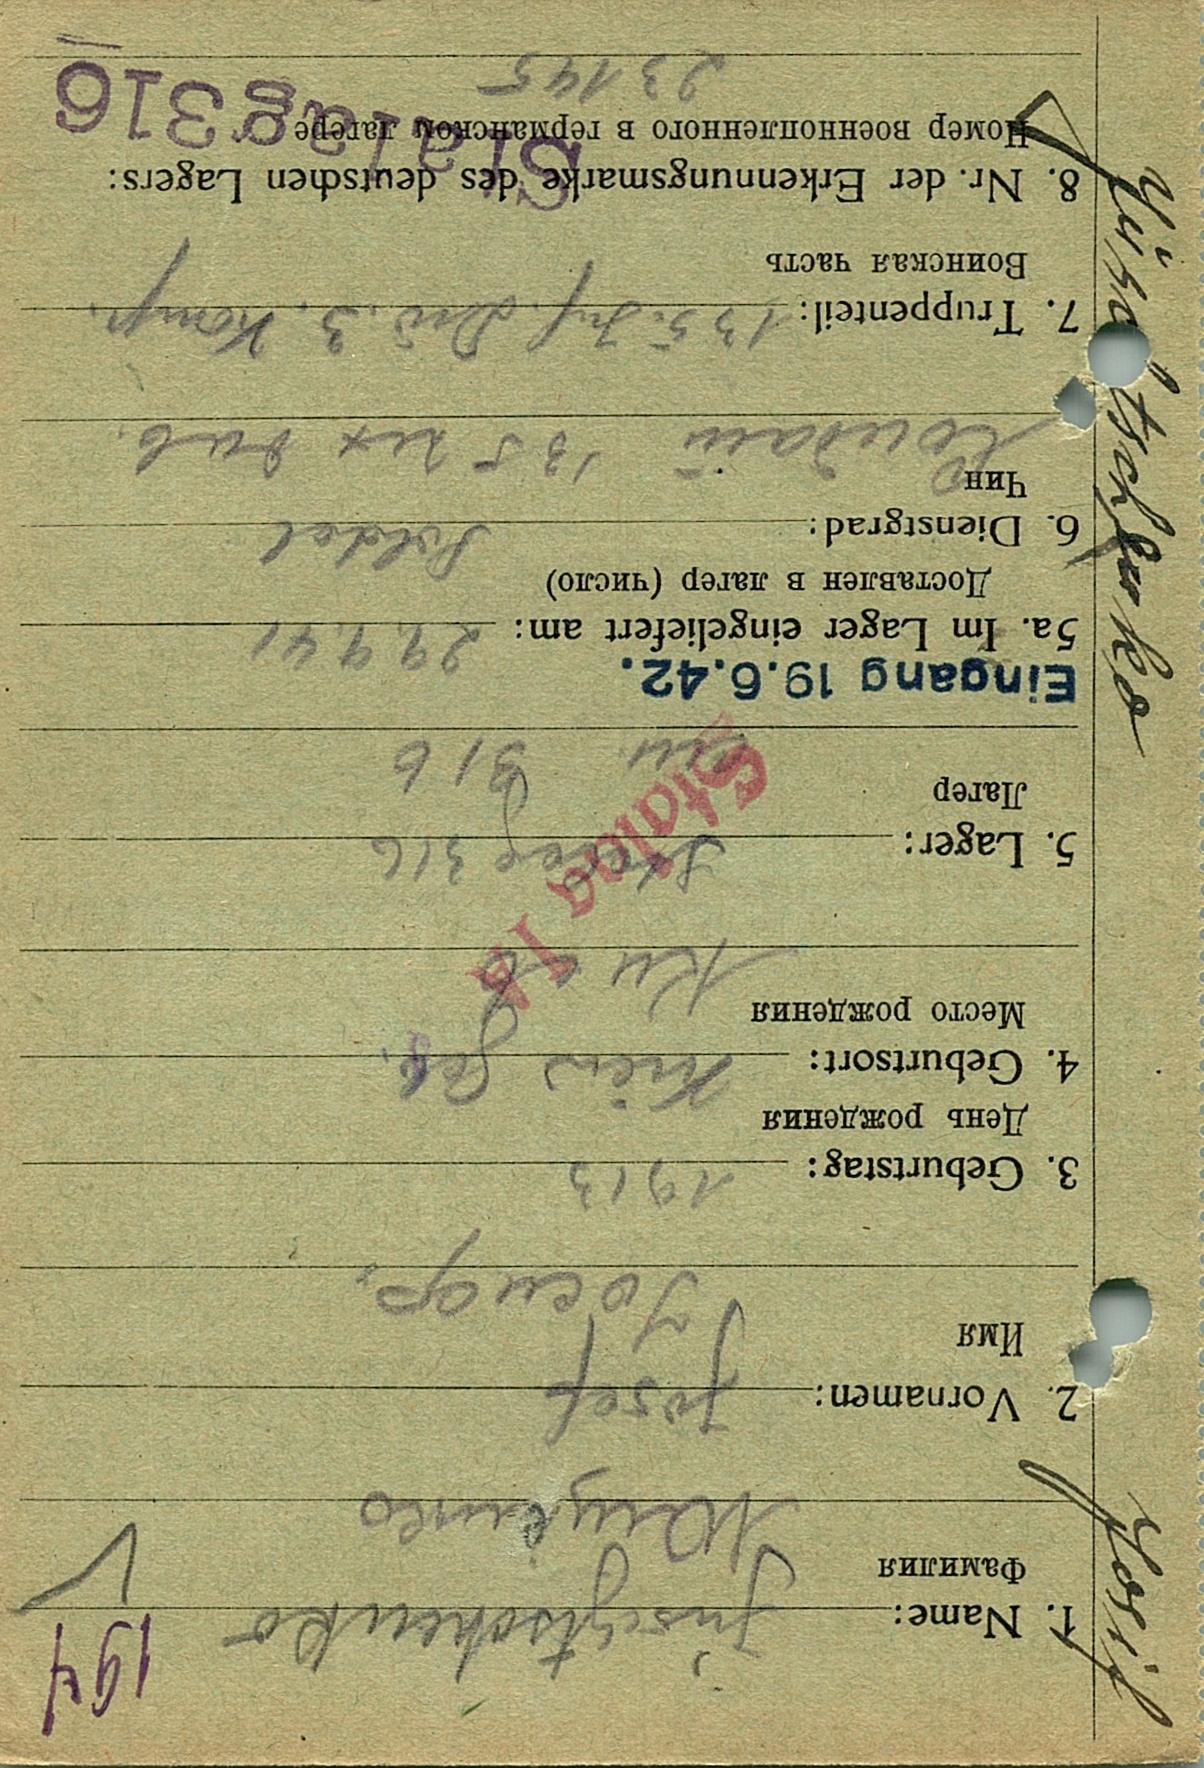 194
1. Name:
Фамилия
2. Vornamen: Josef
Имя
3. Geburtstag: 1913
День рождения
4. Geburtsort: Kiew Geb.
Место рождения
Киев
5. Lager: Stalag 316
Stalag IA
Лагер
316
Eingang 19.6.42.
5a. Im Lager eingeliefert am: 29.9.41
Доставлен в лагер (число)
6. Dienstgrad: Soldat
Чин
135
7. Truppenteil: 135. Inf. Div. 3. Komp.
Воинская часть
8. Nr. der Erkennungsmarke des deutschen Lagers:
Номер военнопленного в германском лагере
Stalag 316
23145
Josif